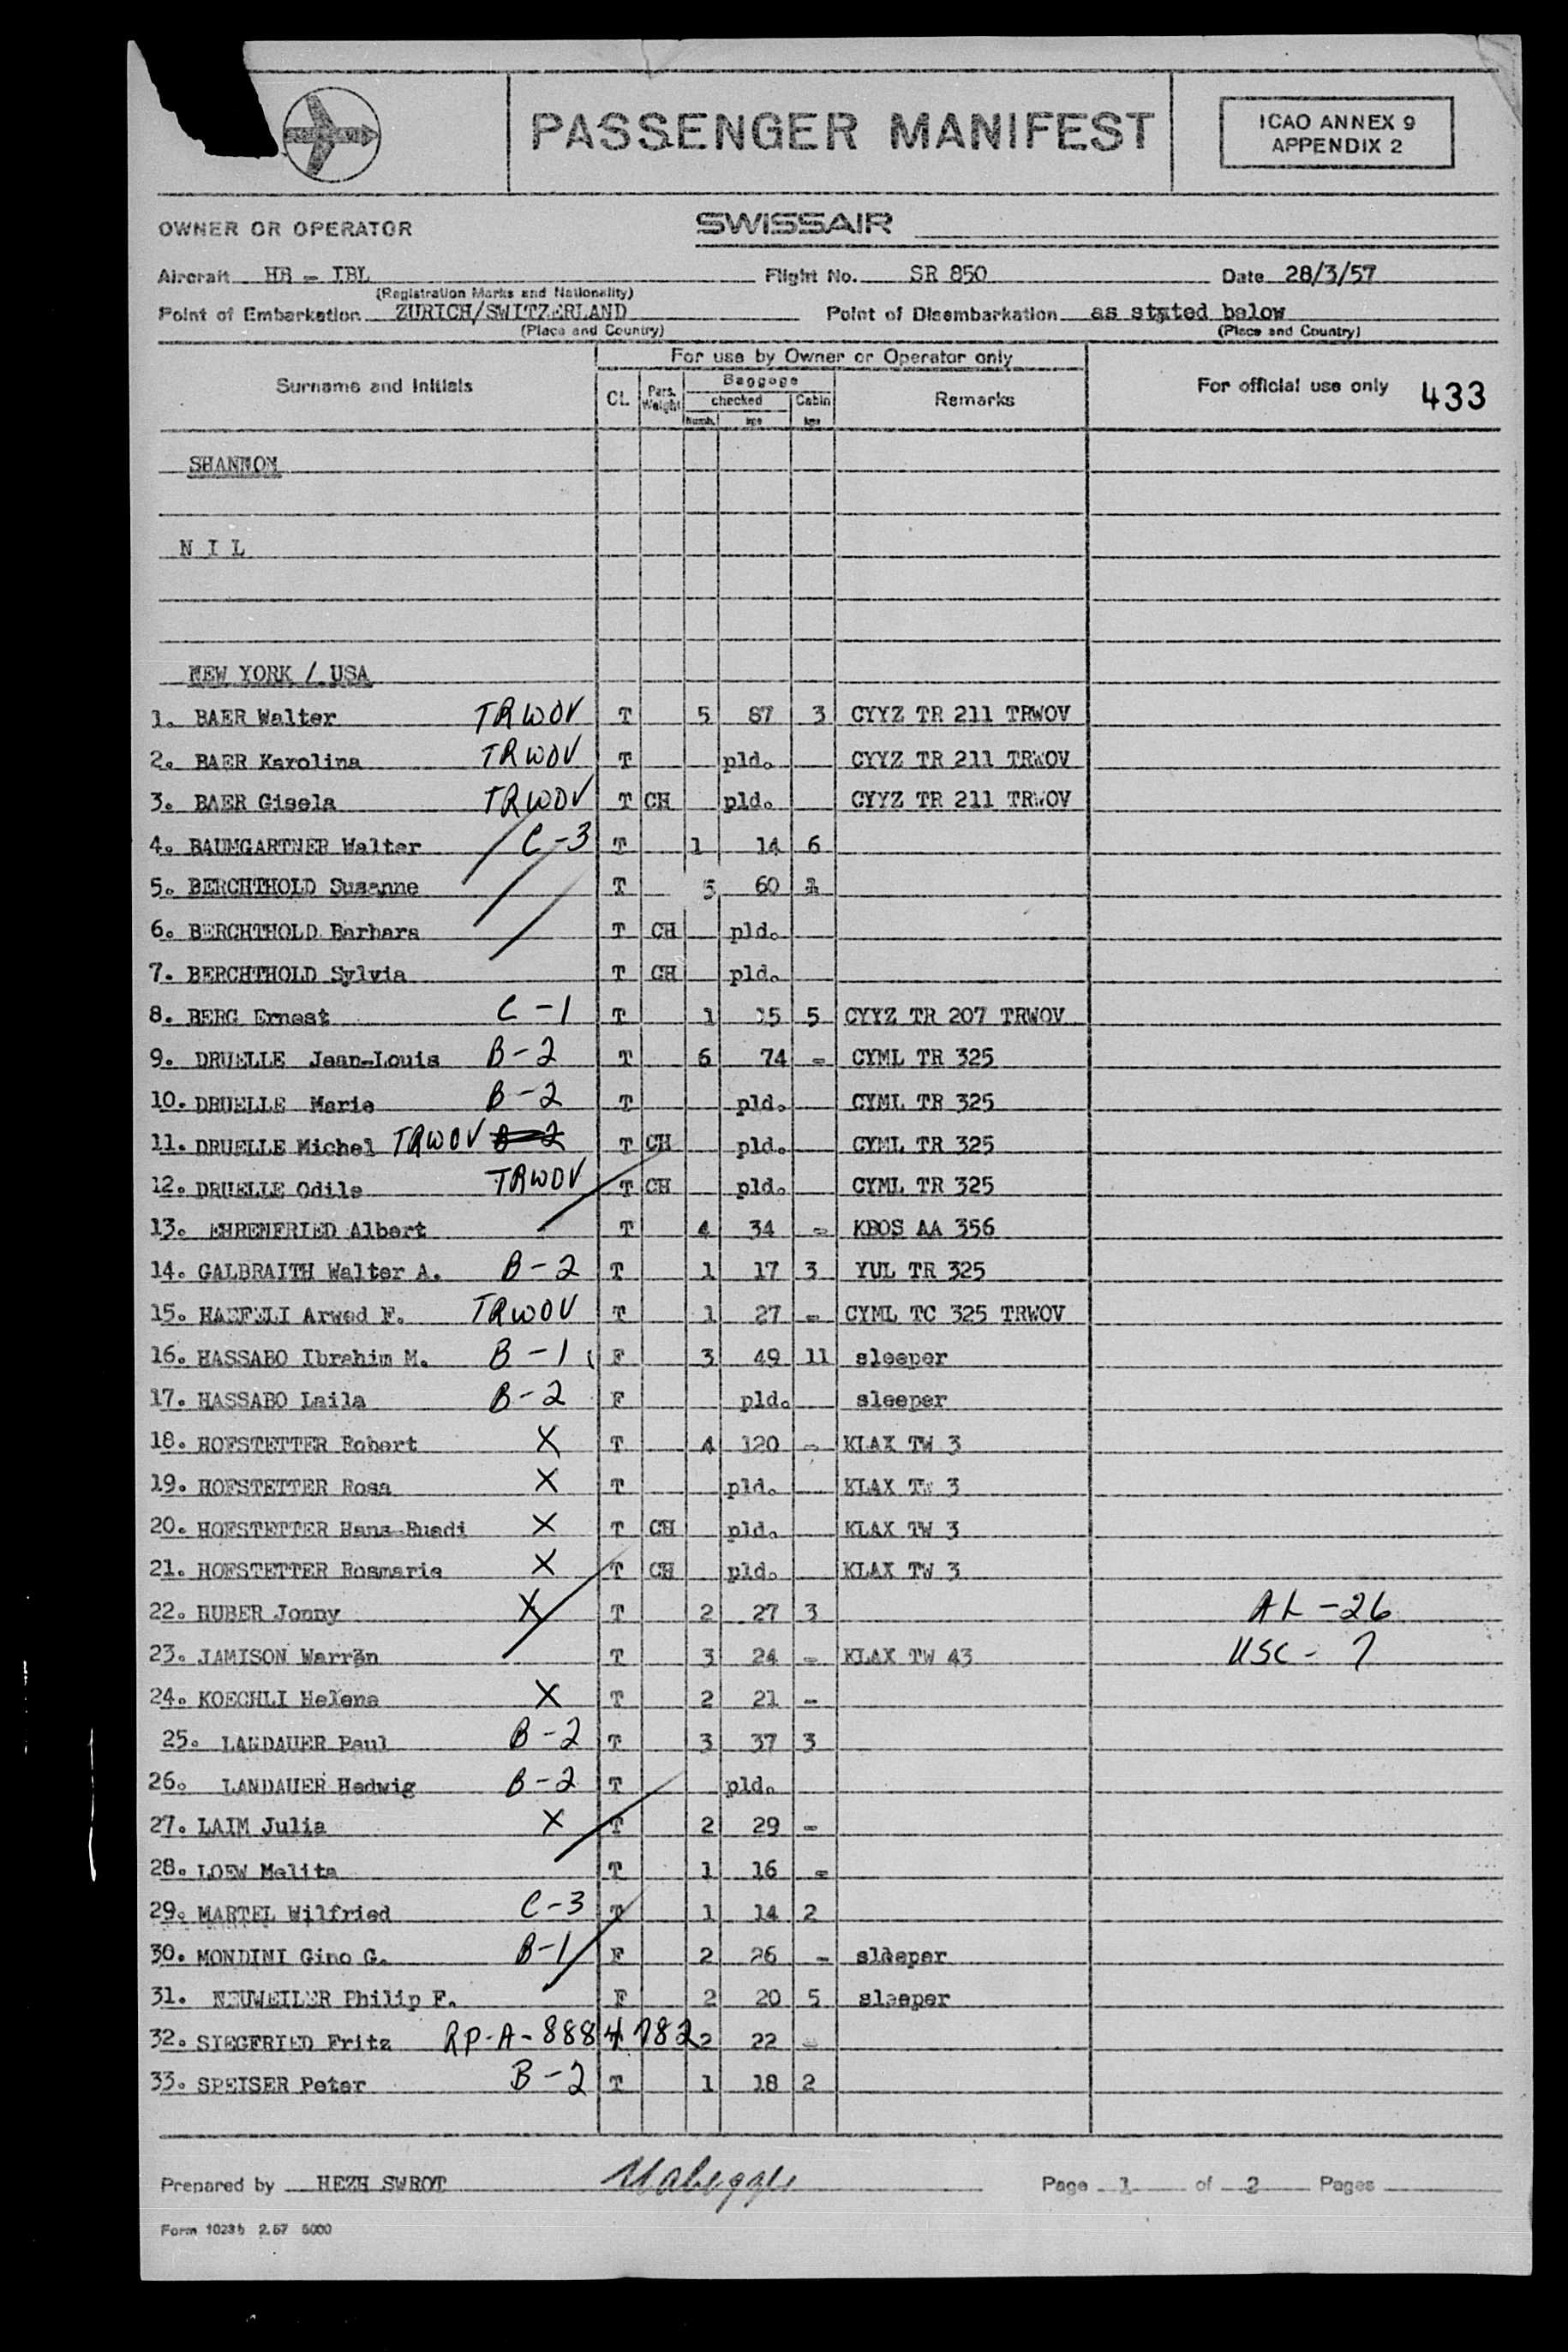 PASSENGER MANIFEST
ICAO ANNEX 9
APPENDIX 2
OWNER OR OPERATOR SWISSAIR
Aircraft HB - IBL Flight No. SR 850 Date 28/3/57
(Registration Marks and Nationality)
Point of Embarkation ZURICH/SWITZERLAND Point of Disembarkation as stated below
(Place and Country) (Place and Country)
Surname and Initials CL. Pars. Weight For use by Owner or Operator only Baggage checked Numb. kgs Cabin kgs Remarks For official use only 433
SHANNON
N I L
NEW YORK / USA
1. BAER Walter TRWOV T 5 87 3 CYYZ TR 211 TRWOV
2. BAER Karolina TRWOV T pld. CYYZ TR 211 TRWOV
3. BAER Gisela TRWOV T CH pld. CYYZ TR 211 TRWOV
4. BAUMGARTNER Walter C-3 T 1 14 6
5. BERCHTHOLD Susanne T 5 60
6. BERCHTHOLD Barbara T CH pld.
7. BERCHTHOLD Sylvia T CH pld.
8. BERG Ernest C-1 T 1 15 5 CYYZ TR 207 TRWOV
9. DRUELLE Jean-Louis B-2 T 6 74 - CYML TR 325
10. DRUELLE Marie B-2 T pld. CYML TR 325
11. DRUELLE Michel TRWOV B-2 T CH pld. CYML TR 325
12. DRUELLE Odile TRWOV T CH pld. CYML TR 325
13. EHRENFRIED Albert T 4 34 - KBOS AA 356
14. GALBRAITH Walter A. B-2 T 1 17 3 YUL TR 325
15. HAEFELI Arwed F. TRWOV T 1 27 - CYML TC 325 TRWOV
16. HASSABO Ibrahim M. B-1 F 3 49 11 sleeper
17. HASSABO Laila B-2 F pld. sleeper
18. HOFSTETTER Robert X T 4 120 - KLAX TW 3
19. HOFSTETTER Rosa X T pld. KLAX TW 3
20. HOFSTETTER Hans-Ruedi X T CH pld. KLAX TW 3
21. HOFSTETTER Rosmarie X T CH pld. KLAX TW 3
22. HUBER Jonny X T 2 27 3 AL-26
23. JAMISON Warren T 3 24 - KLAX TW 43 USC- 7
24. KOECHLI Helena X T 2 21 -
25. LANDAUER Paul B-2 T 3 37 3
26. LANDAUER Hedwig B-2 T pld.
27. LAIM Julia X T 2 29 -
28. LOEW Melita T 1 16 -
29. MARTEL Wilfried C-3 T 1 14 2
30. MONDINI Gino G. B-1 F 2 26 - sleeper
31. NEUWEILER Philip F. F 2 20 5 sleeper
32. SIEGFRIED Fritz RP-A-8884782 T 2 22 -
33. SPEISER Peter B-2 T 1 18 2
Prepared by HEZH SWROT Page 1 of 2 Pages
Form 1023b 2.57 5000